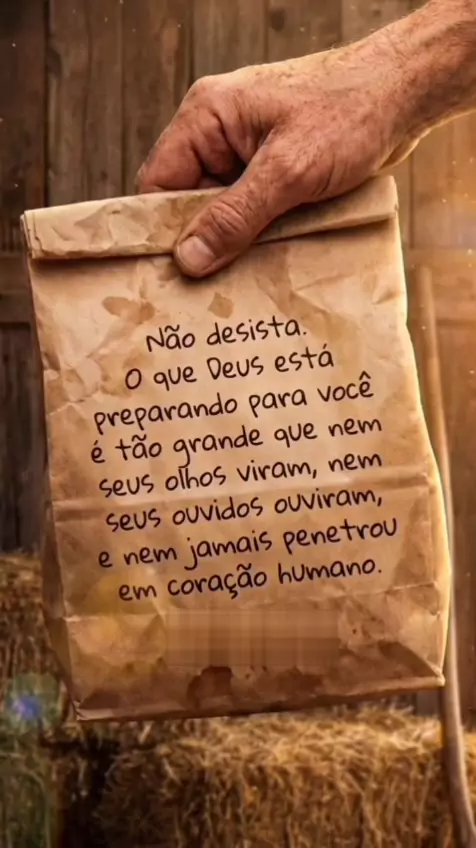 Não desista.
O que Deus está
preparando para você
é tão grande que nem
seus olhos viram, nem
seus ouvidos ouviram,
e nem jamais penetrou
em coração humano.